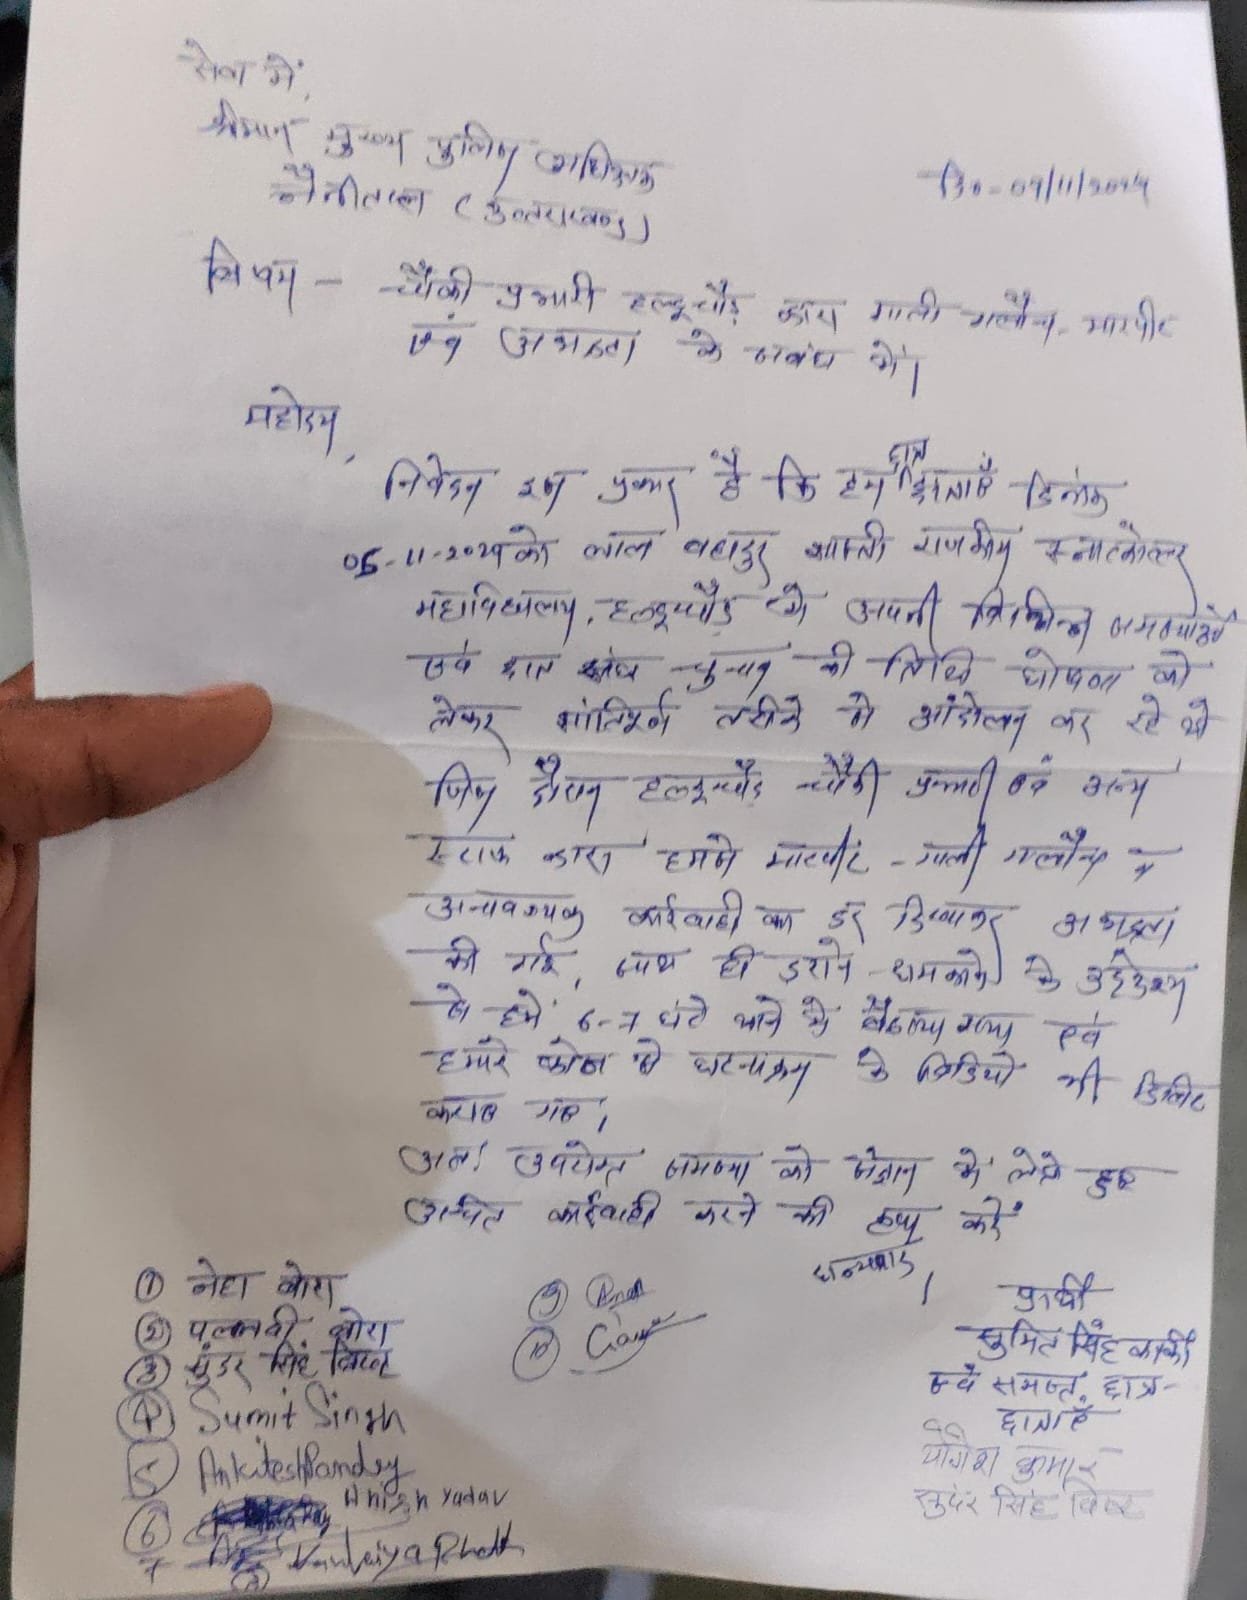 सेवा में,
श्रीमान मुख्य पुलिस अधिक्षक
दि०-07/11/2024
नैनीताल (उत्तराखण्ड)
विषय - चौकी प्रभारी हल्दूचौड़ द्वारा गाली गलौच, मारपीट
एवं अभद्रता के सबंध में।
महोदय,
निवेदन इस प्रकार है कि हम छात्र छात्राऐं दिनांक
05-11-2024 को लाल बहादुर शास्त्री राजकीय स्नातकोत्तर
महाविद्यालय, हल्दूचौड़ में अपनी विभिन्न समस्याओं
एवं छात्र संघ चुनाव की तिथि घोषणा को
लेकर शांतिपूर्ण तरीके से आंदोलन कर रहे थे
जिस दौरान हल्दूचौड़ चौकी प्रभारी एवं अन्य
स्टाफ द्वारा हमसे मारपीट - गाली गलौच व
अनावश्यक कार्रवाही का डर दिखाकर अभद्रता
की गई, साथ ही डराने धमकाने के उद्देश्य
से हमें 6-7 घंटे थाने में बैठाया गया एवं
हमारे फोन से घटनाक्रम के विडियो भी डिलिट
कराए गए।
अतः उपरोक्त समस्या को संज्ञान में लेते हुए
उचित कार्रवाही करने की कृपा करें
धन्यवाद।
① नेहा बोरा
② पल्लवी बोरा
③ सुंदर सिंह बिष्ट
④ Sumit Singh
5 Ankitesh Pandey
⑥ Anish Yadav
7
⑧ Bhatt
⑨
⑩
प्रार्थी
सुमित सिंह कार्की
एवं समस्त छात्र-
छात्राऐं
योगेश कुमार
सुंदर सिंह बिष्ट